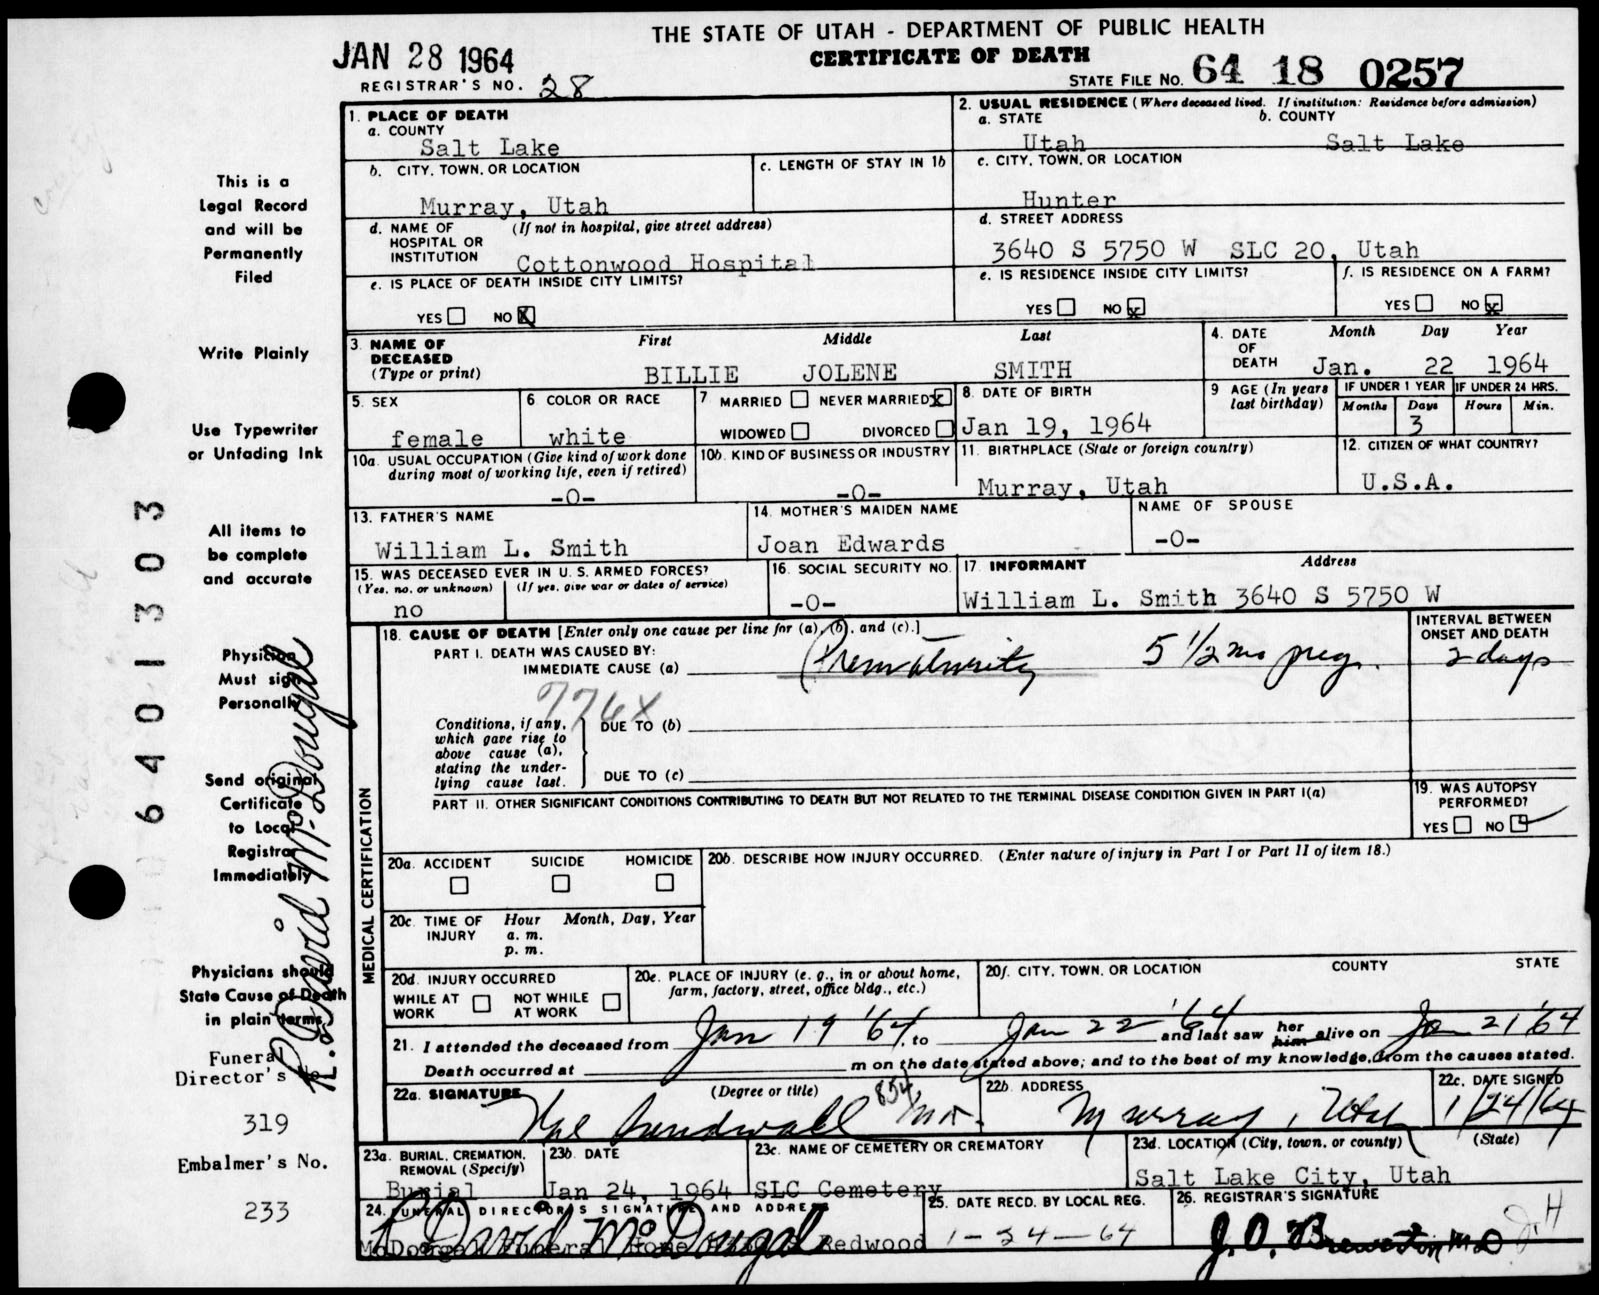 THE STATE OF UTAH - DEPARTMENT OF PUBLIC HEALTH
CERTIFICATE OF DEATH
JAN 28 1964
REGISTRAR'S NO. 28
STATE FILE NO. 64 18 0257
This is a
Legal Record
and will be
Permanently
Filed
Write Plainly
Use Typewriter
or Unfading Ink
All items to
be complete
and accurate
Physician
Must sign
Personally
Send original
Certificate
to Local
Registrar
Immediately
Physicians should
State Cause of Death
in plain terms.
Funeral
Director's No.
319
Embalmer's No.
233
6401303
R. David McDougal
1. PLACE OF DEATH
a. COUNTY
Salt Lake
b. CITY, TOWN, OR LOCATION
Murray, Utah
c. LENGTH OF STAY IN 1b
d. NAME OF HOSPITAL OR INSTITUTION (If not in hospital, give street address)
Cottonwood Hospital
e. IS PLACE OF DEATH INSIDE CITY LIMITS?
YES NO X
2. USUAL RESIDENCE (Where deceased lived. If institution: Residence before admission)
a. STATE b. COUNTY
Utah Salt Lake
c. CITY, TOWN, OR LOCATION
Hunter
d. STREET ADDRESS
3640 S 5750 W SLC 20, Utah
e. IS RESIDENCE INSIDE CITY LIMITS?
YES NO x
f. IS RESIDENCE ON A FARM?
YES NO x
3. NAME OF DECEASED (Type or print)
First Middle Last
BILLIE JOLENE SMITH
4. DATE OF DEATH
Month Day Year
Jan. 22 1964
5. SEX
female
6 COLOR OR RACE
white
7 MARRIED NEVER MARRIED x
WIDOWED DIVORCED
8. DATE OF BIRTH
Jan 19, 1964
9 AGE (In years last birthday)
IF UNDER 1 YEAR IF UNDER 24 HRS.
Months Days Hours Min.
3
10a. USUAL OCCUPATION (Give kind of work done during most of working life, even if retired)
-0-
10b. KIND OF BUSINESS OR INDUSTRY
-0-
11. BIRTHPLACE (State or foreign country)
Murray, Utah
12. CITIZEN OF WHAT COUNTRY?
U.S.A.
13. FATHER'S NAME
William L. Smith
14. MOTHER'S MAIDEN NAME
Joan Edwards
NAME OF SPOUSE
-0-
15. WAS DECEASED EVER IN U. S. ARMED FORCES?
(Yes, no, or unknown) (If yes, give war or dates of service)
no
16. SOCIAL SECURITY NO.
-0-
17. INFORMANT Address
William L. Smith 3640 S 5750 W
MEDICAL CERTIFICATION
18. CAUSE OF DEATH [Enter only one cause per line for (a), (b), and (c).]
PART I. DEATH WAS CAUSED BY:
IMMEDIATE CAUSE (a) Prematurity 5 1/2 mo preg.
INTERVAL BETWEEN ONSET AND DEATH
2 days
776X
Conditions, if any, which gave rise to above cause (a), stating the underlying cause last.
DUE TO (b)
DUE TO (c)
PART II. OTHER SIGNIFICANT CONDITIONS CONTRIBUTING TO DEATH BUT NOT RELATED TO THE TERMINAL DISEASE CONDITION GIVEN IN PART I(a)
19. WAS AUTOPSY PERFORMED?
YES NO ✓
20a. ACCIDENT SUICIDE HOMICIDE
20b. DESCRIBE HOW INJURY OCCURRED. (Enter nature of injury in Part I or Part II of item 18.)
20c. TIME OF INJURY Hour Month, Day, Year
a. m.
p. m.
20d. INJURY OCCURRED
WHILE AT WORK NOT WHILE AT WORK
20e. PLACE OF INJURY (e. g., in or about home, farm, factory, street, office bldg., etc.)
20f. CITY, TOWN, OR LOCATION COUNTY STATE
21. I attended the deceased from Jan 19 '64, to Jan 22 '64 and last saw her him alive on Jan 21 '64
Death occurred at m on the date stated above; and to the best of my knowledge, from the causes stated.
22a. SIGNATURE (Degree or title)
Val Sundwall MD.
854
22b. ADDRESS
Murray, Utah
22c. DATE SIGNED
1/24/64
23a. BURIAL, CREMATION, REMOVAL (Specify)
Burial
23b. DATE
Jan 24, 1964
23c. NAME OF CEMETERY OR CREMATORY
SLC Cemetery
23d. LOCATION (City, town, or county) (State)
Salt Lake City, Utah
24. FUNERAL DIRECTOR'S SIGNATURE AND ADDRESS
R. David McDougal
McDougal Funeral Home Redwood
25. DATE RECD. BY LOCAL REG.
1-24-64
26. REGISTRAR'S SIGNATURE
J. O. Brewerton MD
J.H